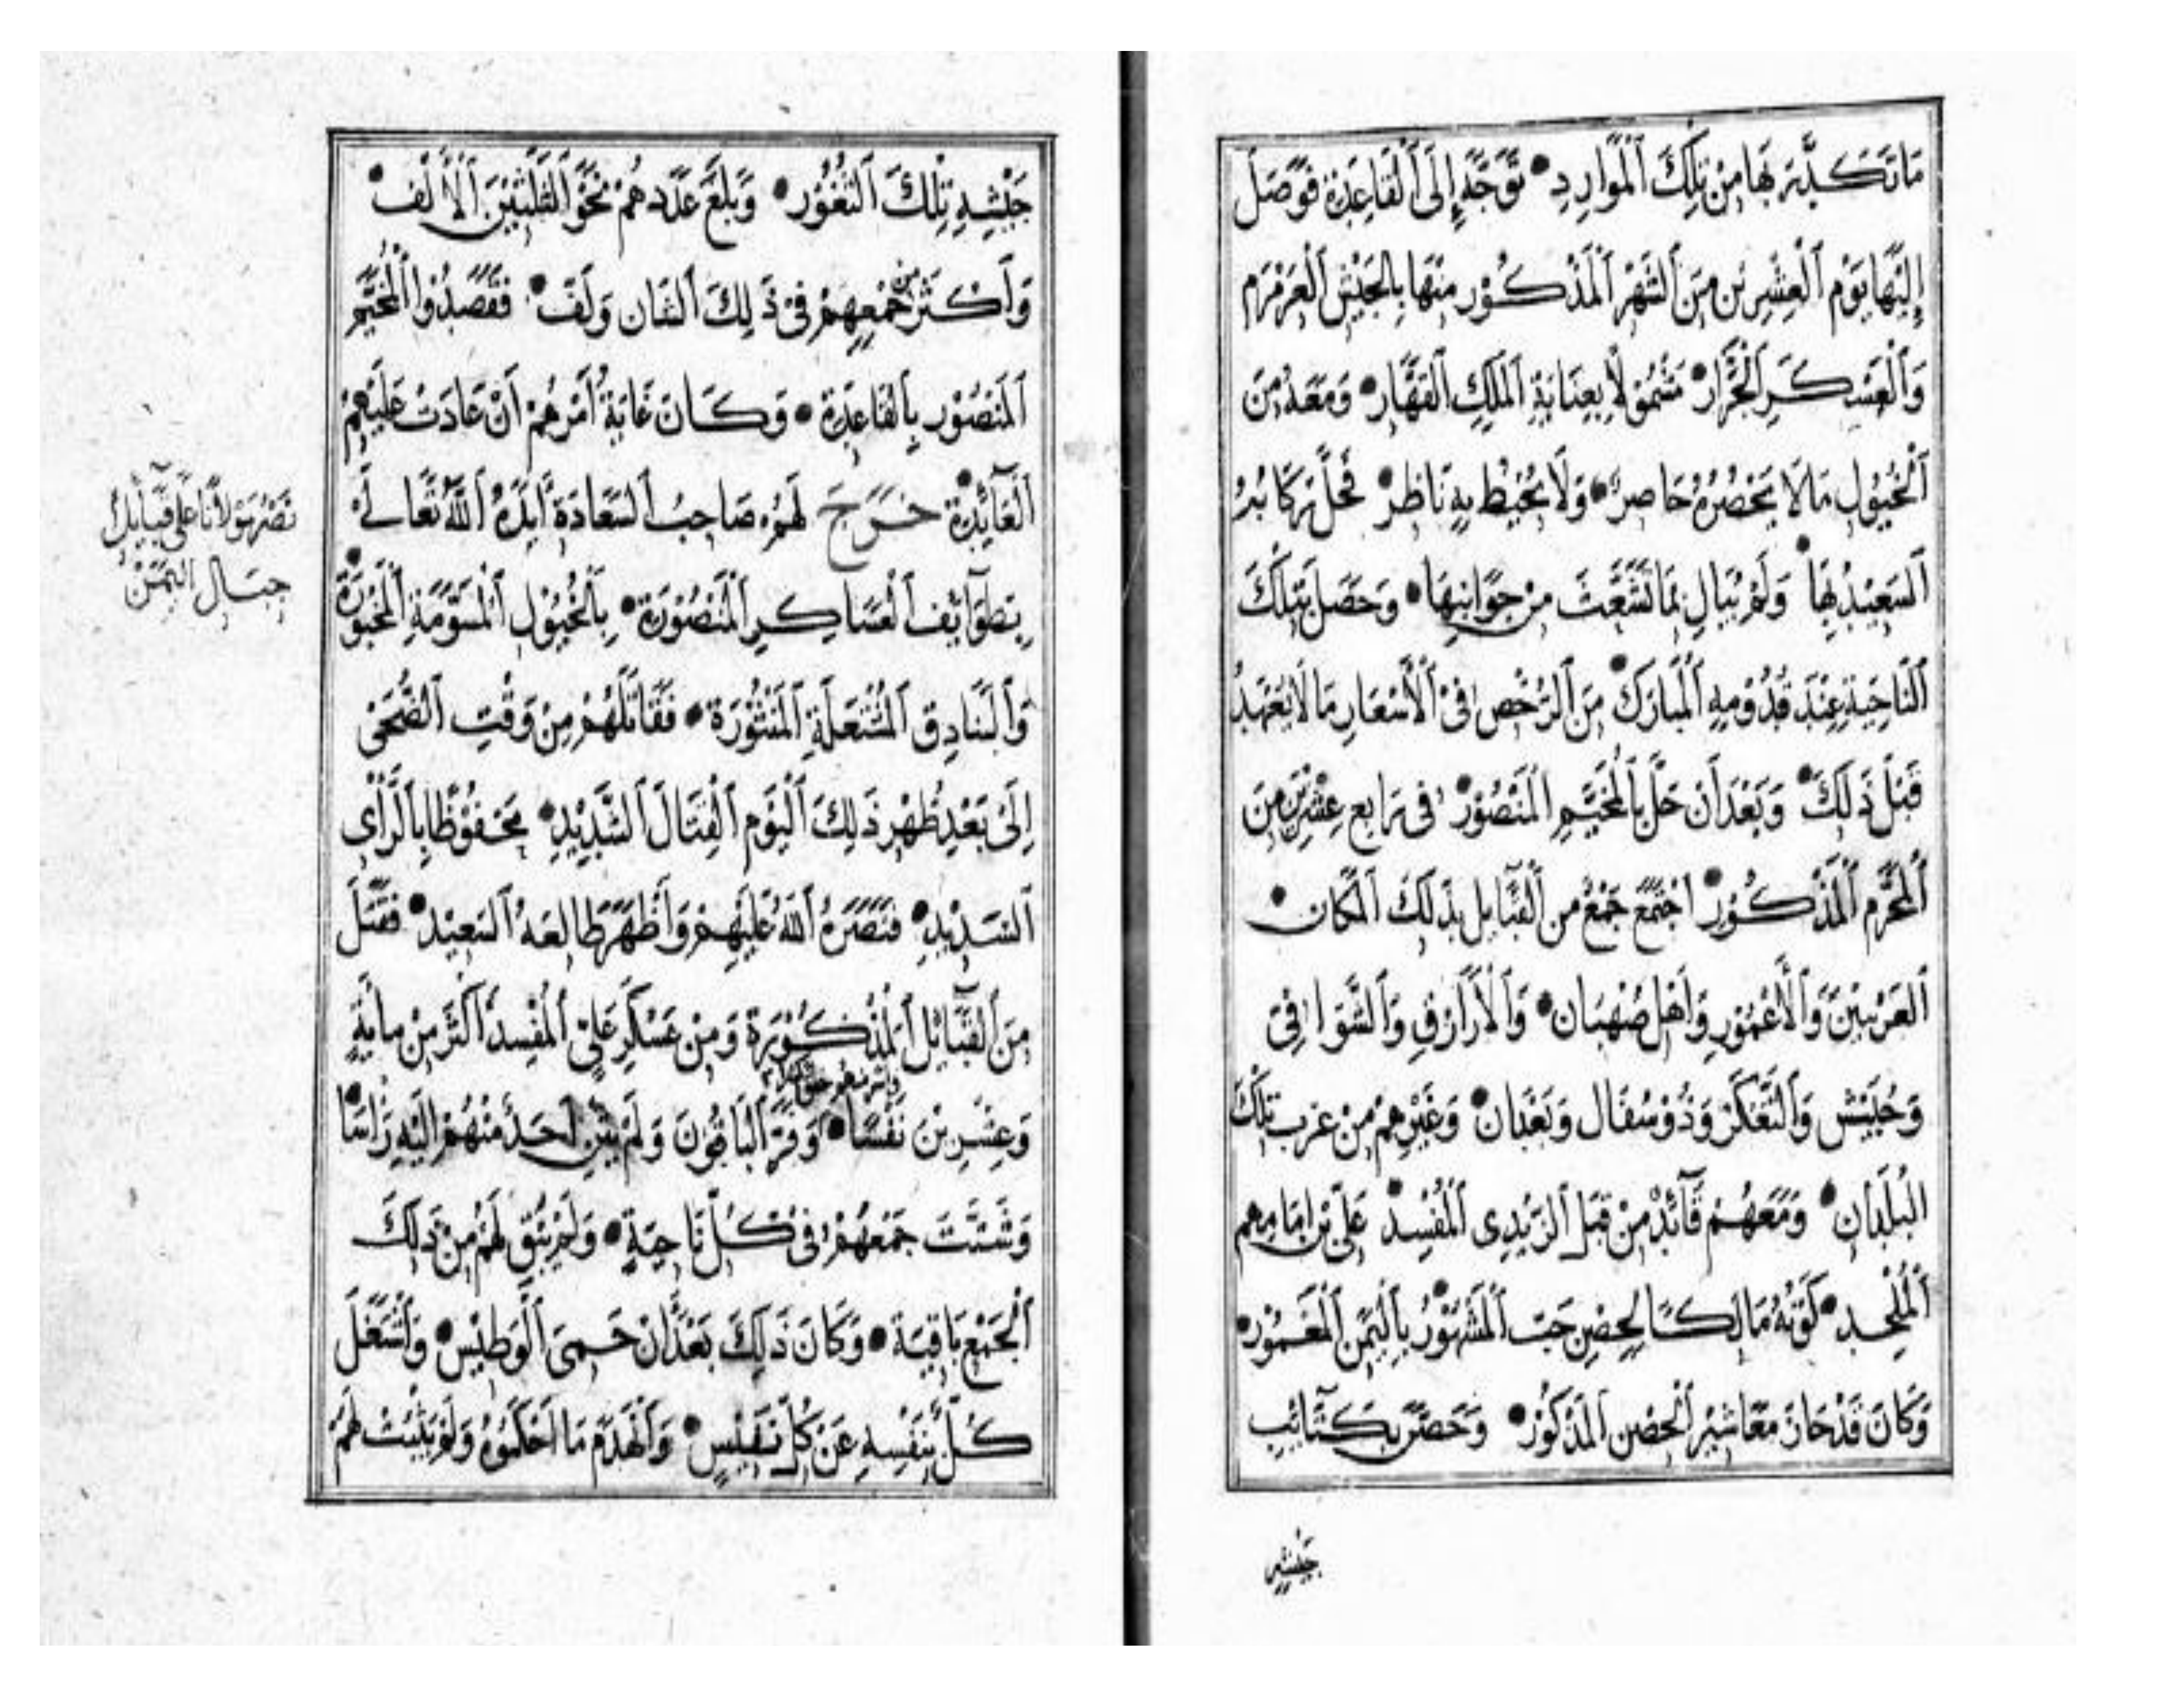 مَا تَكَدَّرَ بِهَا مِنْ تِلْكَ الْمَوَارِدِ • تَوَجَّهَ إِلَى الْقَاعِدَةِ فَوَصَلَ
إِلَيْهَا يَوْمَ الْعِشْرِينَ مِنَ الشَّهْرِ الْمَذْكُورِ مِنْهَا بِالْجَيْشِ الْعَرَمْرَمِ
وَالْعَسْكَرِ الْجَرَّارِ • مَشْمُولًا بِعِنَايَةِ الْمَلِكِ الْقَهَّارِ • وَمَعَهُ مِنَ
الْخُيُولِ مَا لَا يَحْصُرُهُ حَاصِرٌ • وَلَا يُحِيطُ بِهِ نَاظِرٌ • فَحَلَّ رَكَابُهُ
السَّعِيدُ بِهَا • وَلَمْ يُبَالِ بِمَا تَشَعَّثَ مِنْ جَوَانِبِهَا • وَحَصَلَ بِتِلْكَ
النَّاحِيَةِ عِنْدَ قُدُومِهِ الْمُبَارَكِ • مِنَ الرُّخْصِ فِي الْأَسْعَارِ مَا لَا يُعْهَدُ
قَبْلَ ذَلِكَ • وَبَعْدَ أَنْ حَلَّ بِالْمُخَيَّمِ الْمَنْصُورِ • فِي رَابِعِ عِشْرِينَ مِنَ
الْمُحَرَّمِ الْمَذْكُورِ • اجْتَمَعَ جَمْعٌ مِنَ الْقَبَايِلِ بِذَلِكَ الْمَكَانِ •
الْعَرَبِيِّينَ وَالْأُعْمُورِ وَأَهْلِ صُهْبَانَ • وَالْأَزَارِقِ وَالشَّوَافِي
وَحُبَيْشٍ وَالتَّعْكَرِ وَذُو سُفَالَ وَبَعْدَانَ • وَغَيْرِهِمْ مِنْ عَرَبِ تِلْكَ
الْبُلْدَانِ • وَمَعَهُمْ قَآئِدٌ مِنْ قِبَلِ الزَّيْدِي الْمُفْسِدِ • عَلِيِّ بْنِ إِمَامِهِمِ
الْمُلْحِدِ • لِكَوْنِهِ مَالِكًا لِحِصْنِ حَبّ الْمَشْهُورِ • بِالْيَمَنِ الْمَعْمُورِ •
وَكَانَ قَدْ حَازَ مَعَاشِيرَ الْحِصْنِ الْمَذْكُورِ • وَحَصَرَ بِكَتَآئِبِ
جَيْشِهِ
جَيْشِهِ تِلْكَ الثُّغُورَ • وَبَلَغَ عَدَدُهُمْ نَحْوَ الثَّلَثِينَ الْأَلْفِ •
وَأَكْثَرَ مِنْ جَمْعِهِمْ فِي ذَلِكَ الشَّانِ وَلَفَّ • فَقَصَدُوا الْمُخَيَّمَ
الْمَنْصُورَ بِالْقَاعِدَةِ • وَكَانَ غَايَةُ أَمْرِهِمْ أَنْ عَادَتْ عَلَيْهِمُ
الْعَآئِدَةُ • خَرَجَ لَهُمْ صَاحِبُ السَّعَادَةِ أَيَّدَهُ اللَّهُ تَعَالَى
بِطَوَآئِفِ الْعَسَاكِرِ الْمَنْصُورَةِ • بِالْخُيُولِ الْمُسَوَّمَةِ الْمَخْبُورَةِ •
وَالْبَنَادِقِ الْمُشْتَعِلَةِ الْمَنْثُورَةِ • فَقَاتَلَهُمْ مِنْ وَقْتِ الضُّحَى
إِلَى بُعَيْدِ ظُهْرِ ذَلِكَ الْيَوْمِ الْقِتَالَ الشَّدِيدَ • مَحْفُوظًا بِالرَّأْيِ
السَّدِيدِ • فَنَصَرَهُ اللَّهُ عَلَيْهِمْ وَأَظْهَرَ طَالِعَهُ السَّعِيدَ • فَقَتَلَ
مِنَ الْقَبَآئِلِ الْمَذْكُورَةِ وَمِنْ عَسْكَرِ عَلِيٍّ الْمُفْسِدِ أَكْثَرَ مِنْ مِايَةٍ
وَعِشْرِينَ نَفْسًا • وَفَرَّ الْبَاقُونَ وَلَمْ يَثْنِ أَحَدٌ مِنْهُمْ إِلَيْهِ رَاسًا •
وَشَتَّتَ جَمْعَهُمْ فِي كُلِّ نَاحِيَةٍ • وَلَمْ يَبْقَ لَهُمْ مِنْ ذَلِكَ
الْجَمْعِ بَاقِيَة • وَكَانَ ذَلِكَ بَعْدَ أَنْ حَمِيَ الْوَطِيسُ • وَاشْتَغَلَ
كُلٌّ بِنَفْسِهِ عَنْ كُلِّ نَفِيسٍ • وَانْهَدَمَ مَا أَحْكَمُوهُ وَلَمْ يَثْبُتْ لَهُمْ
نَصْرُ مَوْلَانَا عَلَى قَبَآئِلِ
جِبَالِ الْيَمَنْ